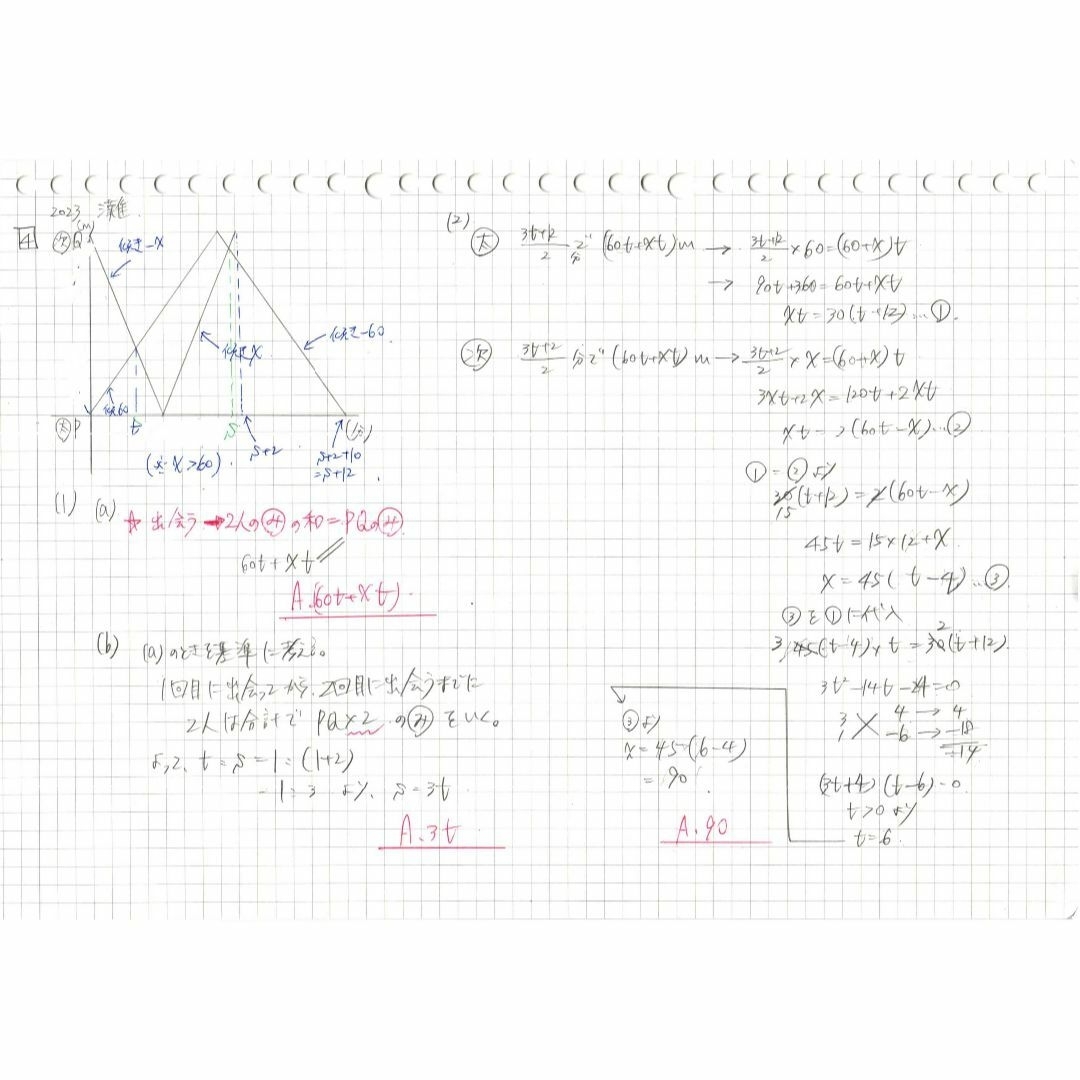 2023 灘
4
次 Q (m)
傾き-x
傾き60
傾きx
傾き-60
太 P
t
s
s+2
s+2+10
=s+12
(分)
(※ x>60)
(1) (a) ☆ 出会う → 2人の㋯の和=PQの㋯
60t+xt
A.(60t+xt)
(b) (a)のときを基準に考える。
1回目に出会ってから、2回目に出会うまでに
2人は合計で PQ×2 の㋯をいく。
よって、t:s=1:(1+2)
=1:3 より、s=3t
A.3t
(2)
太 3t+12/2 分で (60t+xt)m → 3t+12/2 ×60=(60+x)t
→ 90t+360=60t+xt
xt=30(t+12)…①
次 3t+2/2 分で (60t+xt)m → 3t+2/2 ×x=(60+x)t
3xt+2x=120t+2xt
xt=2(60t-x)…②
①=②より
30(t+12)=2(60t-x)
15
45t=15×12+x
x=45(t-4)…③
③を①に代入
2
3 45(t-4)×t=30(t+12)
3t²-14t-24=0
3 4 → 4
1 -6 → -18
-14
(3t+4)(t-6)=0
t>0より
t=6
③より
x=45(6-4)
=90
A.90